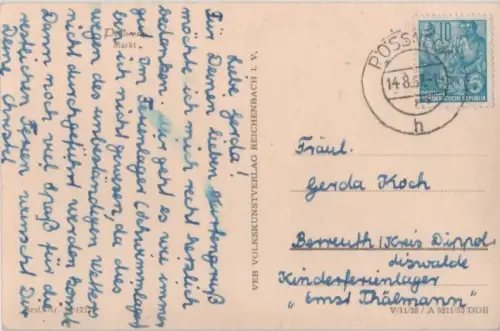 Pößneck
Markt
Liebe Gerda!
Für Deinen lieben Kartengruß
möchte ich mich recht herzlich
bedanken. Mir geht es wie immer
gut. Im Ferienlager (Schwimmlager)
bin ich nicht gewesen, da dies
wegen des unbeständigen Wetters
nicht durchgeführt werden konnte.
Dann noch viel Spaß für die
restlichen Ferien wünscht Dir
Deine Christl
VEB VOLKSKUNSTVERLAG REICHENBACH I. V.
PÖSSNECK
14.8.
h
10
DEUTSCHE DEMOKRATISCHE REPUBLIK
Fräul.
Gerda Koch
Berreuth/Kreis Dippol-
diswalde
Kinderferienlager
"Ernst Thälmann"
V/11/28 / A 9211/53/DDR